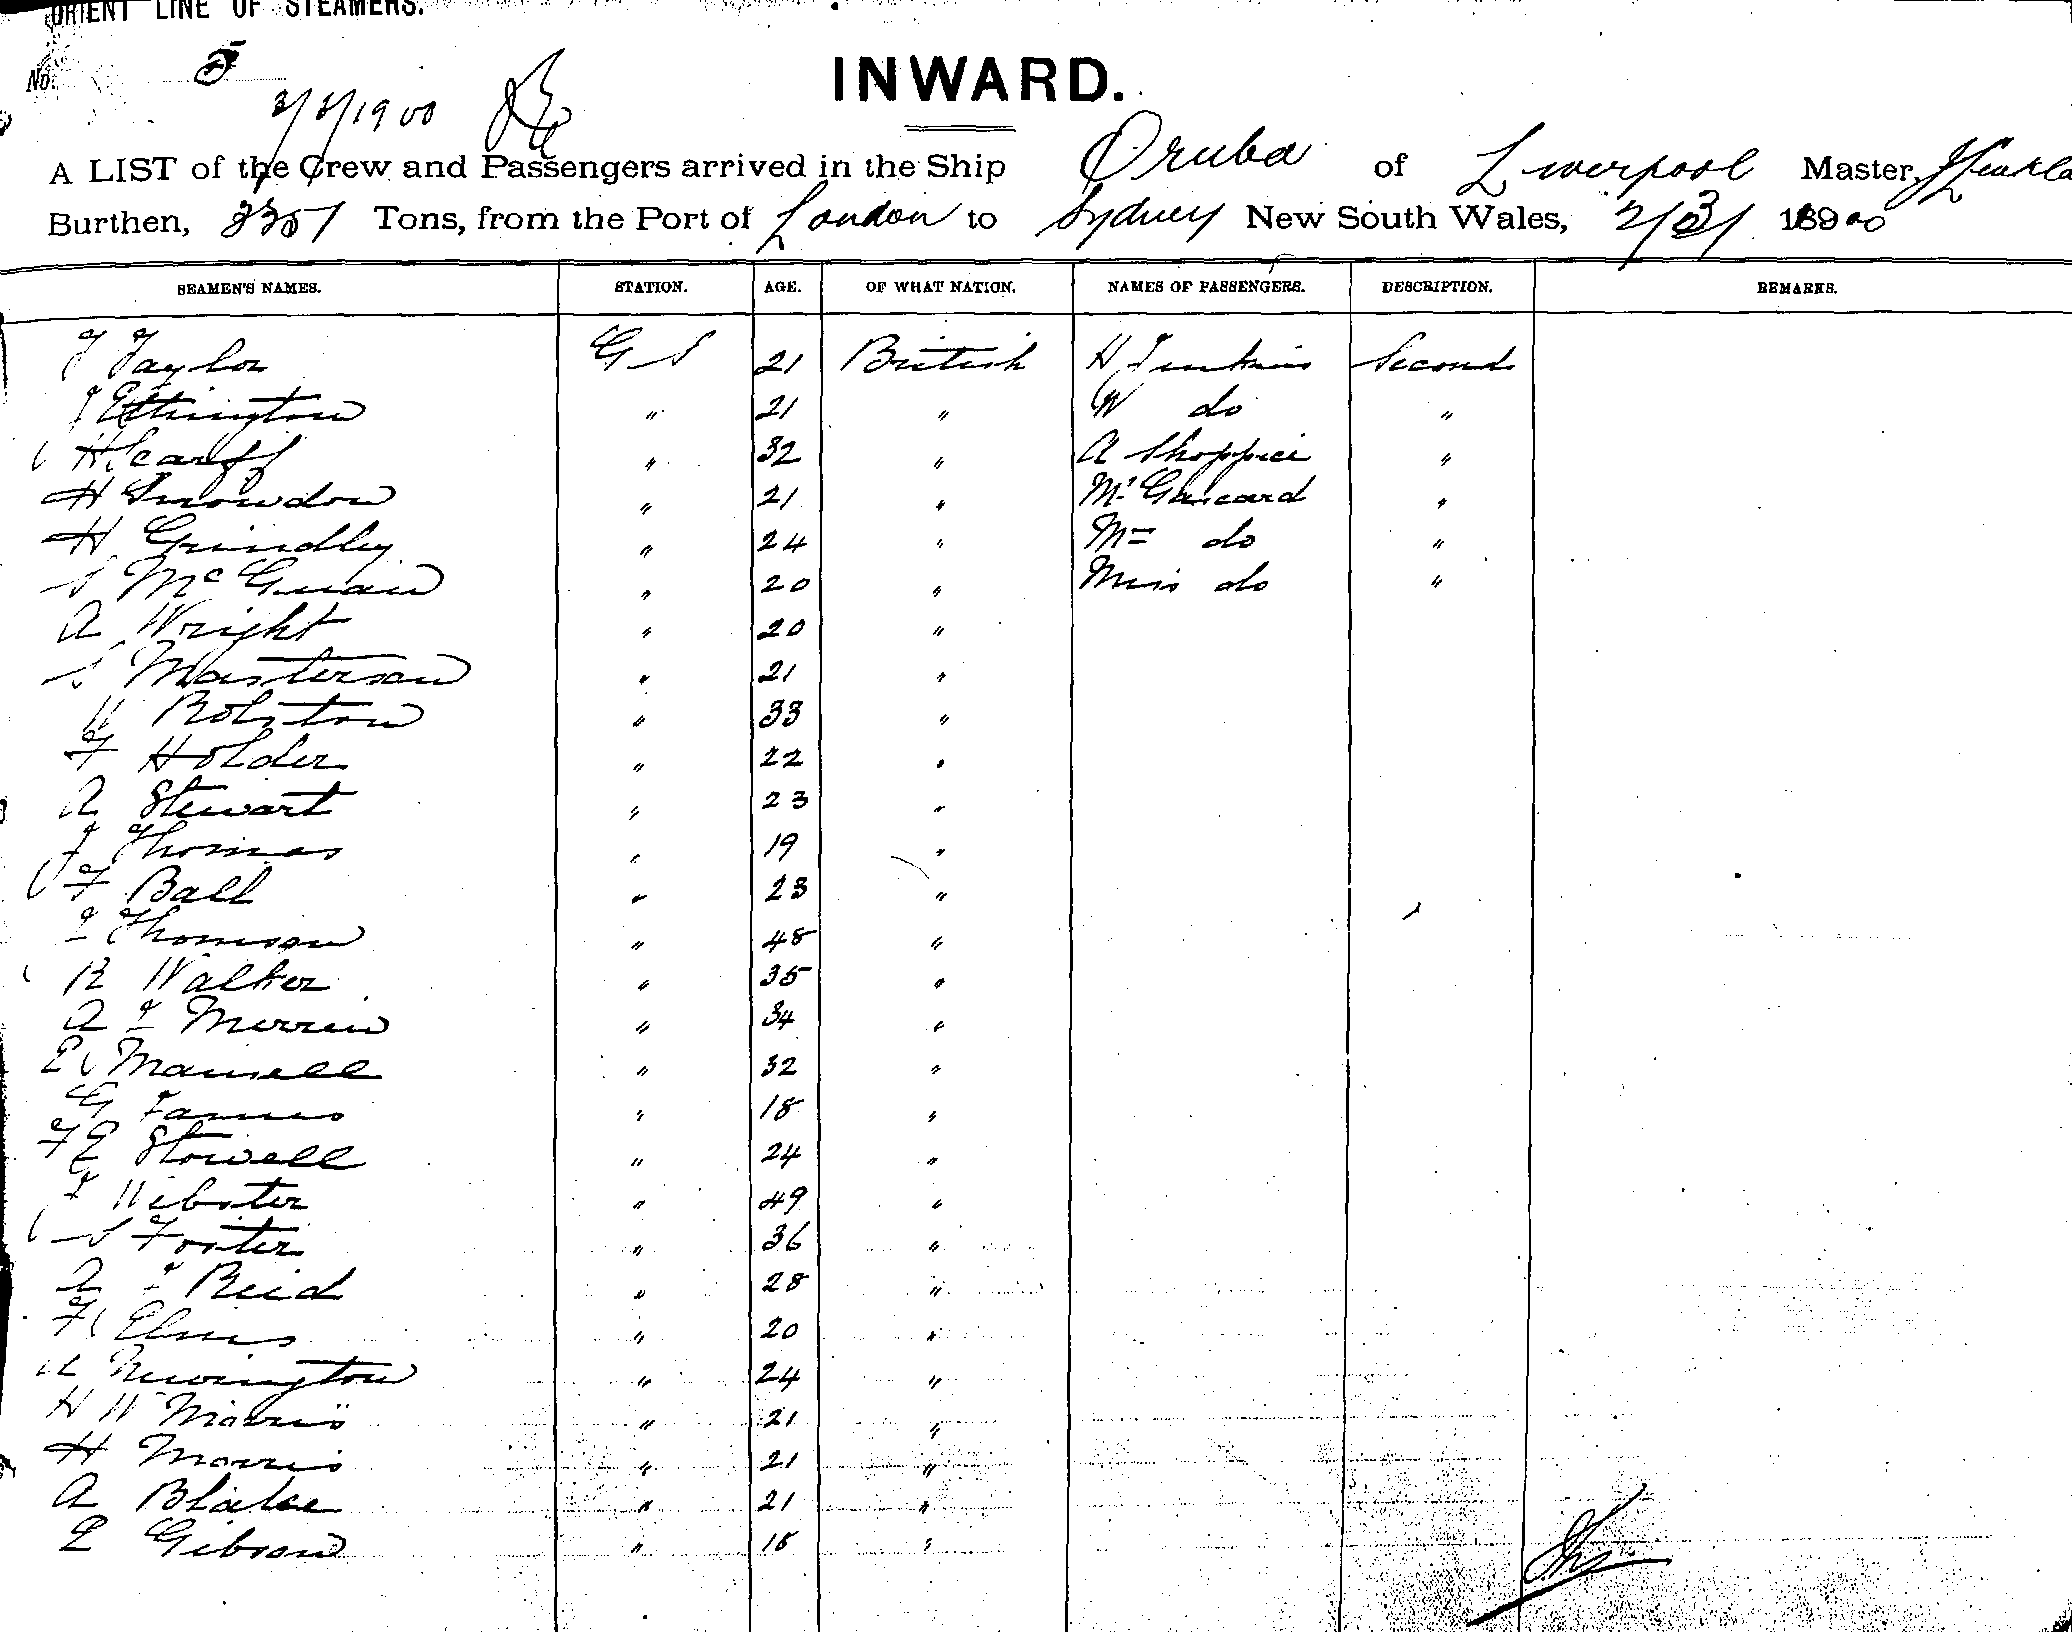 ORIENT LINE OF STEAMERS.
No. 5
2/3/1900
INWARD.
A LIST of the Crew and Passengers arrived in the Ship Oruba of Liverpool Master,
Burthen, 3351 Tons, from the Port of London to Sydney New South Wales, 2/3/ 1900
SEAMEN'S NAMES. STATION. AGE. OF WHAT NATION. NAMES OF PASSENGERS. DESCRIPTION. REMARKS.
Taylor G S 21 British H Jenkins Second
Ethington " 21 " W do "
H Scarff " 32 " A "
H Snowdon " 21 " Mr Gascard "
H Grindley " 24 " do "
S McGuian " 20 " Miss do "
A Wright " 20 "
S Masterson " 21 "
Rolston " 33 "
F Holder " 22 "
A Stewart " 23 "
J Thomas " 19 "
F Ball " 23 "
J Thomson " 48 "
R Walker " 35 "
A J Merrin " 34 "
E Mansell " 32 "
G James " 18 "
F E Stowell " 24 "
J Webster " 49 "
S Foster " 36 "
A J Reid " 28 "
F Elms " 20 "
Newington " 24 "
H W Morris " 21 "
H Morris " 21 "
A Blake " 21 "
E Gibson " 18 "